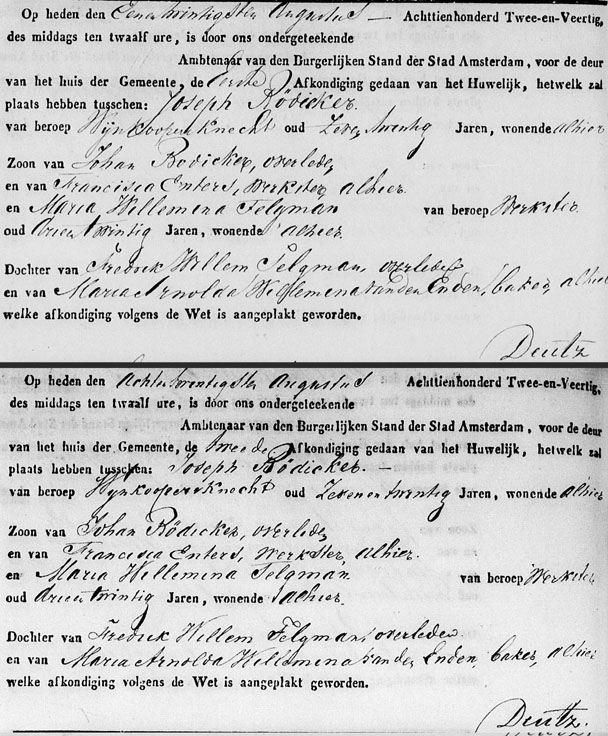 Op heden den Eenentwintigsten Augustus — Achttienhonderd Twee-en-Veertig,
des middags ten twaalf ure, is door ons ondergeteekende
Ambtenaar van den Burgerlijken Stand der Stad Amsterdam, voor de deur
van het huis der Gemeente, de Eerste Afkondiging gedaan van het Huwelijk, hetwelk zal
plaats hebben tusschen: Joseph Rödicker
van beroep Wijnkoopersknecht oud Zevenentwintig Jaren, wonende alhier
Zoon van Johan Rodicker, overleden
en van Francisca Enters, Werkster, alhier
en Maria Willemina Felgman van beroep Werkster
oud drieentwintig Jaren, wonende alhier
Dochter van Fredrik Willem Felgman overleden
en van Maria Arnolda Willemena van den Enden, baker, alhier
welke afkondiging volgens de Wet is aangeplakt geworden.
Deutz
Op heden den Achtentwintigsten Augustus Achttienhonderd Twee-en-Veertig,
des middags ten twaalf ure, is door ons ondergeteekende
Ambtenaar van den Burgerlijken Stand der Stad Amsterdam, voor de deur
van het huis der Gemeente, de tweede Afkondiging gedaan van het Huwelijk, hetwelk zal
plaats hebben tusschen: Joseph Rödicker —
van beroep Wijnkoopersknecht oud Zevenentwintig Jaren, wonende alhier
Zoon van Johan Rödicker, overleden
en van Francisca Enters, Werkster, alhier.
en Maria Willemina Felgman van beroep Werkster
oud drieentwintig Jaren, wonende alhier
Dochter van Fredrik Willem Felgman overleden
en van Maria Arnolda Willemena van den Enden baker, alhier
welke afkondiging volgens de Wet is aangeplakt geworden.
Deutz.